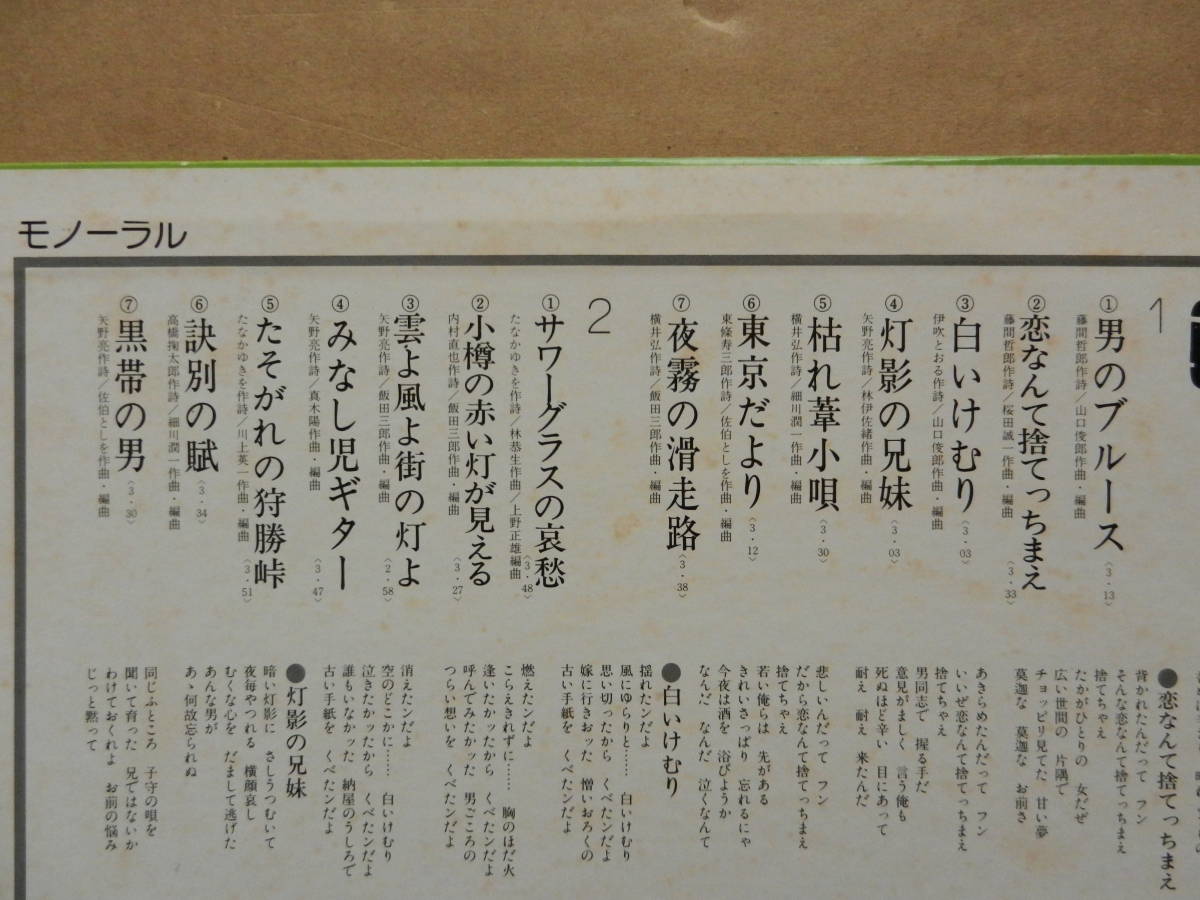 モノーラル
1
①男のブルース〈3・13〉
藤間哲郎作詩/山口俊郎作曲・編曲
②恋なんて捨てっちまえ〈3・33〉
藤間哲郎作詩/桜田誠一作曲・編曲
③白いけむり〈3・03〉
伊吹とおる作詩/山口俊郎作曲・編曲
④灯影の兄妹〈3・03〉
矢野亮作詩/林伊佐緒作曲・編曲
⑤枯れ葦小唄〈3・30〉
横井弘作詩/細川潤一作曲・編曲
⑥東京だより〈3・12〉
東條寿三郎作詩/佐伯としを作曲・編曲
⑦夜霧の滑走路〈3・38〉
横井弘作詩/飯田三郎作曲・編曲
2
①サワーグラスの哀愁〈3・48〉
たなかゆきを作詩/林恭生作曲/上野正雄編曲
②小樽の赤い灯が見える〈3・27〉
内村直也作詩/飯田三郎作曲・編曲
③雲よ風よ街の灯よ〈2・58〉
矢野亮作詩/飯田三郎作曲・編曲
④みなし児ギター〈3・47〉
矢野亮作詩/真木陽作曲・編曲
⑤たそがれの狩勝峠〈3・51〉
たなかゆきを作詩/川上英一作曲・編曲
⑥訣別の賦〈3・34〉
高橋掬太郎作詩/細川潤一作曲・編曲
⑦黒帯の男〈3・30〉
矢野亮作詩/佐伯としを作曲・編曲
●恋なんて捨てっちまえ
背かれたんだって フン
そんな恋なんて捨てっちまえ
捨てちゃえ
たかがひとりの 女だぜ
広い世間の 片隅で
チョッピリ見てた 甘い夢
莫迦な 莫迦な お前さ
あきらめたんだって フン
いいぜ恋なんて捨てっちまえ
捨てちゃえ
男同志で 握る手だ
意見がましく 言う俺も
死ぬほど辛い 目にあって
耐え 耐え 来たんだ
悲しいんだって フン
だから恋なんて捨てっちまえ
捨てちゃえ
若い俺らは 先がある
きれいさっぱり 忘れるにゃ
今夜は酒を 浴びようか
なんだ なんだ 泣くなんて
●白いけむり
揺れたンだよ
風にゆらりと…… 白いけむり
思い切ったから くべたンだよ
嫁に行きおッた 憎いおろくの
古い手紙を くべたンだよ
燃えたンだよ
こらえきれずに…… 胸のほだ火
逢いたかッたから くべたンだよ
呼んでみたかッた 男ごころの
つらい想いを くべたンだよ
消えたンだよ
空のどこかに…… 白いけむり
泣きたかッたから くべたンだよ
誰もいなかッた 納屋のうしろで
古い手紙を くべたンだよ
●灯影の兄妹
暗い灯影に さしうつむいて
夜毎やつれる 横顔哀し
むくな心を だまして逃げた
あんな男が
あゝ何故忘られぬ
同じふところ 子守の唄を
聞いて育った 兄ではないか
わけておくれよ お前の悩み
じっと黙って